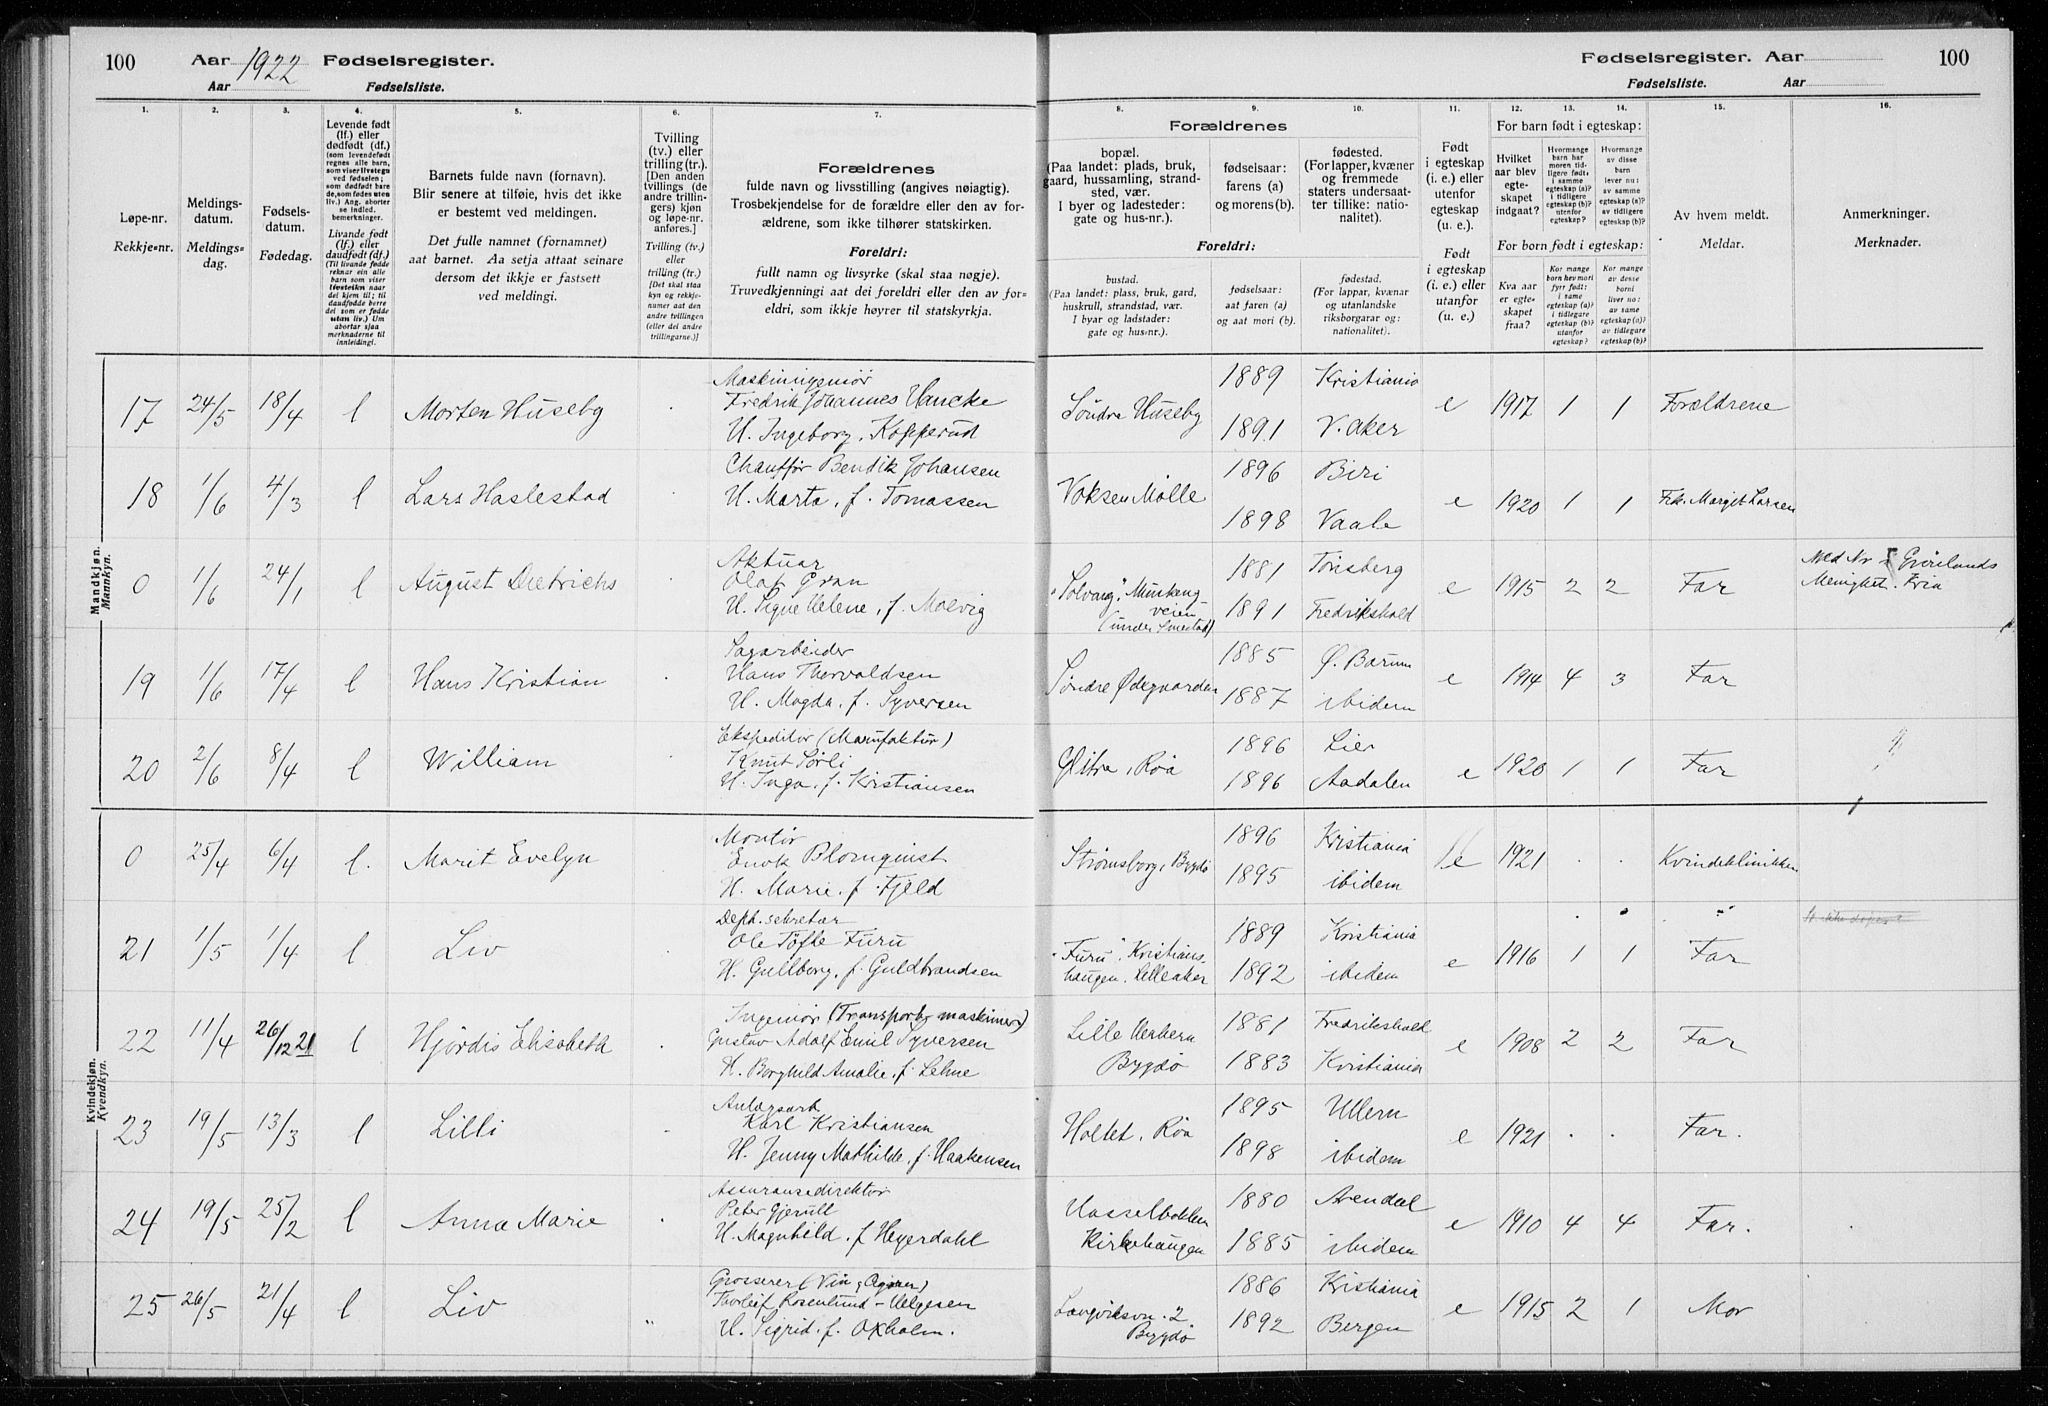 100 Aar 1922 Fødselsregister.
Aar Fødselsliste.
Fødselsregister. Aar 100
Fødselsliste. Aar
1. 2. 3. 4. 5. 6. 7. 8. 9. 10. 11. 12. 13. 14. 15. 16.
Løpe-nr.
Rekkje-nr.
Meldings-
datum.
Meldings-
dag.
Fødsels-
datum.
Fødedag.
Levende født
(lf.) eller
dødfødt (df.)
(som levendefødt
regnes alle barn,
som viser livstegn
ved fødselen;
som dødfødt bare
de, som fødes uten
liv.) Ang. aborter
se indled.
bemerkninger.
Livande født
(lf.) eller
daudfødt (df.)
(Til livande fødde
reknar ein alle
barn som viser
livsteikn naar
dei kjem til; til
daudfødde berre
dei som er fødde
utan liv.) Um
abortar sjaa
merknaderne til
innleidingi.
Barnets fulde navn (fornavn).
Blir senere at tilføie, hvis det ikke
er bestemt ved meldingen.
Det fulle namnet (fornamnet)
aat barnet. Aa setja attaat seinare
dersom det ikkje er fastsett
ved meldingi.
Tvilling
(tv.) eller
trilling (tr.).
[Den anden
tvillings (de
andre trillin-
gers) kjøn
og løpe-nr.
anføres.]
Tvilling (tv.)
eller
trilling (tr.)
[Det skal staa
kyn og rekkje-
numer aat den
andre tvillingen
(eller dei andre
trillingarne.)]
Forældrenes
fulde navn og livsstilling (angives nøiagtig).
Trosbekjendelse for de forældre eller den av for-
ældrene, som ikke tilhører statskirken.
Foreldri:
fullt namn og livsyrke (skal staa nøgje).
Truvedkjenningi aat dei foreldri eller den av for-
eldri, som ikkje høyrer til statskyrkja.
Forældrenes
bopæl.
(Paa landet: plads, bruk,
gaard, hussamling, strand-
sted, vær.
I byer og ladesteder:
gate og hus-nr.).
fødselsaar:
farens (a)
og morens (b).
fødested.
(For lapper, kvæner
og fremmede
staters undersaat-
ter tillike: natio-
nalitet).
Foreldri:
bustad.
(Paa landet: plass, bruk, gard,
huskrull, strandstad, vær.
I byar og ladstader:
gate og hus-nr.).
fødselsaar:
aat faren (a)
og aat mori (b).
fødestad.
(For lappar, kvænar
og utanlandske
riksborgarar og:
nationalitet).
Født
i egteskap
(i. e.) eller
utenfor
egteskap
(u. e.).
Født
i egteskap
(i. e.) eller
utanfor
egteskap
(u. e.).
For barn født i egteskap:
Hvilket
aar blev
egte-
skapet
indgaat?
Hvormange
barn har
moren tid-
ligere født:
i samme
egteskap (a)?
i tidligere
egteskap (b)?
utenfor
egteskap?
Hvormange
av disse
barn
lever nu:
av samme
egteskap (a)?
av tidligere
egteskap (b)?
For born født i egteskap:
Kva aar
er egte-
skapet
fraa?
Kor mange
barn hev mori
fyrr født:
i same
egteskap (a)?
i tidlegare
egteskap (b)?
utanfor
egteskap?
Kor mange
av desse
borni
liver no:
av same
egteskap (a)?
av tidlegare
egteskap (b)?
Av hvem meldt.
Meldar.
Anmerkninger.
Merknader.
Mandkjøn.
Mannkyn.
17 24/5 18/4 l Morten Huseby Maskiningeniør
Fredrik Johannes Hancke
H. Ingeborg, Kopperud
Søndre Huseby 1889 Kristiania
1891 V. Aker
e 1917 1 1 Forældrene
18 1/6 4/3 l Lars Haslestad Chauffør Bendik Johansen
H. Marta, f. Tomassen
Voksen Mølle 1896 Biri
1898 Vaale
e 1920 1 1 Frk. Margit Larsen
0 1/6 24/1 l August Dietrichs Aktuar
Olaf Gran
H. Signe Helene, f. Moevig
"Solvang", Munkeng-
veien
(under Smestad)
1881 Tønsberg
1891 Fredrikshald
e 1915 2 2 Far Med Nr Grønlands
Menighet. Kria
19 1/6 17/4 l Hans Kristian Sagarbeider
Hans Thorvaldsen
H. Magda, f. Syversen
Søndre Ødegaarden 1885 Ø. Bærum
1887 ibidem
e 1914 4 3 Far
20 2/6 8/4 l William Ekspeditør (Manufaktur)
Knut Sørli
H. Inga, f. Kristiansen
Glitre, Røa 1896 Lier
1896 Aadalen
e 1920 1 1 Far
Kvindekjøn.
Kvendkyn.
0 25/4 6/4 l. Marit Evelyn Montør
Enok Blomquist
H. Marie, f. Fjeld
Strømsborg, Bygdø 1896 Kristiania
1895 ibidem
e 1921 . . Kvindeklinikken
21 1/5 1/4 l Liv Dept. sekretær
Ole Tøfte Furu
H. Gullborg, f. Guldbrandsen
"Furu", Kristians-
haugen, Lilleaker
1889 Kristiania
1892 ibidem
e 1916 1 1 Far
22 11/4 26/12 21 l Hjørdis Elisabeth Ingeniør (Transport maskiner)
Gustav Adolf Emil Syversen
H. Borghild Amalie, f. Lehne
Lille Herbern
Bygdø
1881 Fredrikshald
1883 Kristiania
e 1908 2 2 Far
23 19/5 13/3 l Lilli Anlægsarb
Karl Kristiansen
H. Jenny Mathilde, f. Haakensen
Holtet, Røa 1895 Ullern
1898 ibidem
e 1921 . . Far.
24 19/5 25/2 l Anna Marie Assuransedirektør
Peter Gjerull
H. Magnhild, f Heyerdahl
Hasselbakken
Kirkehaugen
1880 Arendal
1885 ibidem
e 1910 4 4 Far.
25 26/5 21/4 l Liv Grosserer (Vin, Cigarer)
Thorleif Rosenlund-Helgesen
H. Sigrid, f. Oxholm.
Langviksvn. 2
Bygdø
1886 Kristiania
1892 Bergen
e 1915 2 1 Mor